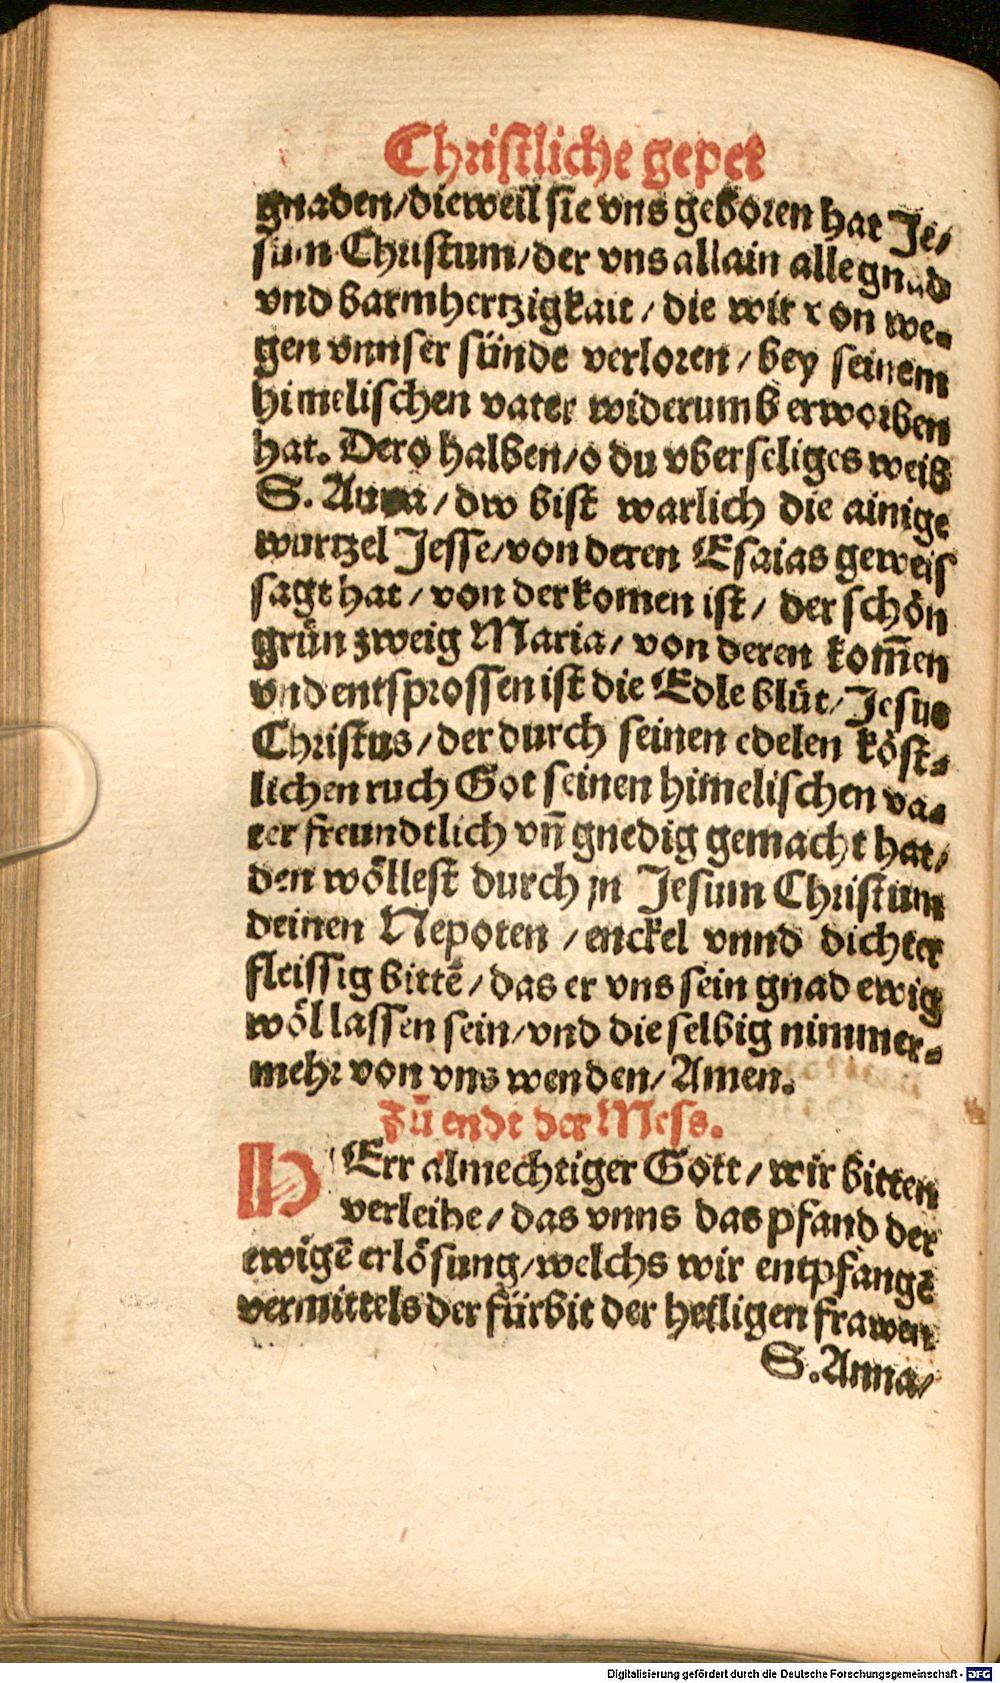 Christliche gepet
gnaden/dieweil sie vns geboren hat Je/
sum Christum/der vns allain alle gnad
vnd barmhertzigkait/ die wir von we-
gen vnnser sünde verloren/ bey seinem
himelischen vater widerumb erworben
hat. Dero halben/o du vberseliges weib
S. Anna/ dw bist warlich die ainige
wurtzel Jesse/von deren Esaias geweis
sagt hat/ von der komen ist/ der schön
grün zweig Maria/ von deren kom̄en
vnd entsprossen ist die Edle blüt/ Jesus
Christus/ der durch seinen edelen köst-
lichen ruch Got seinen himelischen va-
ter freundtlich vn̄ gnedig gemacht hat/
den wöllest durch jn Jesum Christum
deinen Nepoten /enckel vnnd dichter
fleissig bittē/ das er vns sein gnad ewig
wöl lassen sein/vnd die selbig nimmer-
mehr von vns wenden/ Amen.
Zů ende der Mess.
HErr almechtiger Gott/ wir bitten
verleihe/ das vnns das pfand der
ewigē erlösung/welchs wir entpfangē
vermittels der fürbit der heiligen frawen
S. Anna/
Digitalisierung gefördert durch die Deutsche Forschungsgemeinschaft - DFG